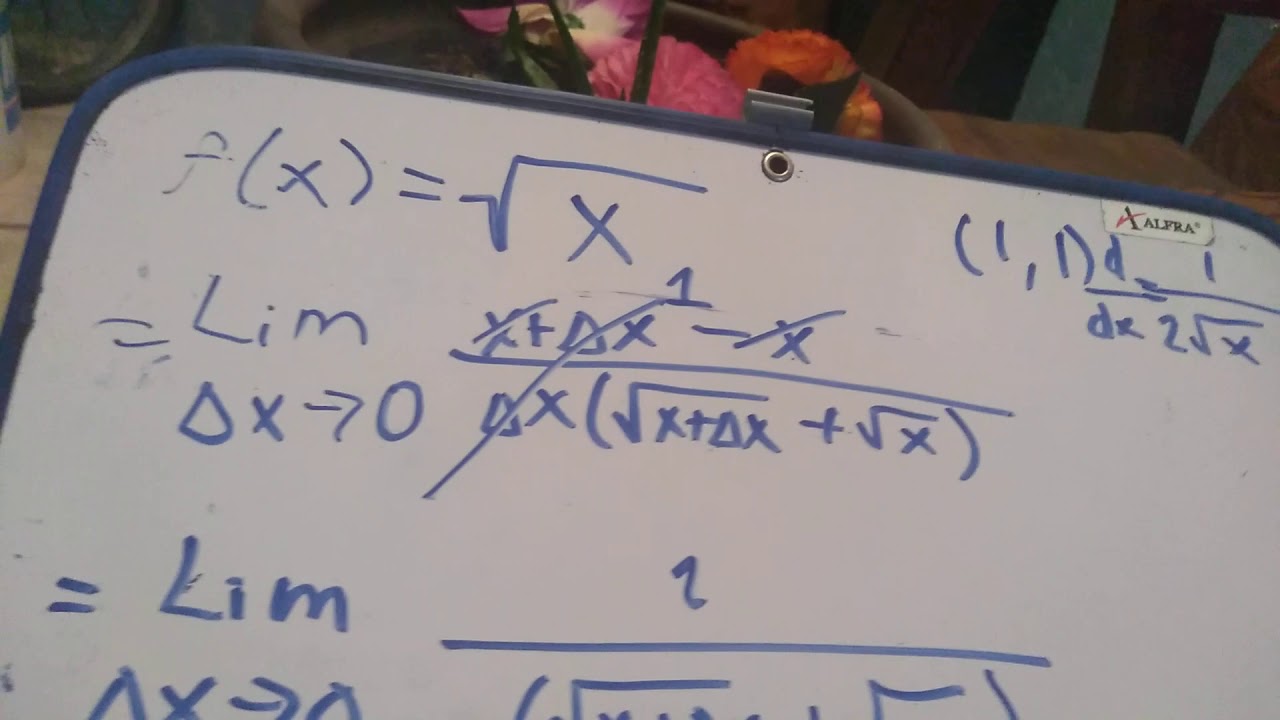 f(x) = √x
ALFRA®
(1,1) d/dx = 1/(2√x)
= Lim Δx→0 (x+Δx - x)/(Δx(√x+Δx + √x)) 1
= Lim Δx→0 1/(√x+Δx + √x)